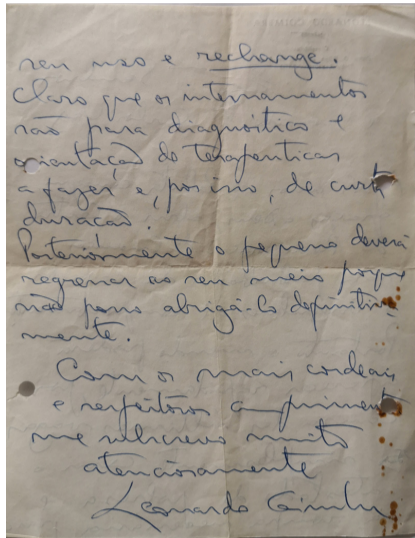 seu uso e rechange.
Claro que os internamentos
são para diagnóstico e
orientação de terapeuticas
a fazer e, por isso, de curta
duração.
Posteriormente o pequeno deverá
regressar ao seu meio porque
não posso abrigá-lo definitiva-
mente.
Com os mais cordeais
e respeitosos cumprimentos
me subscrevo muito
atenciosamente
Leonardo Coimbra